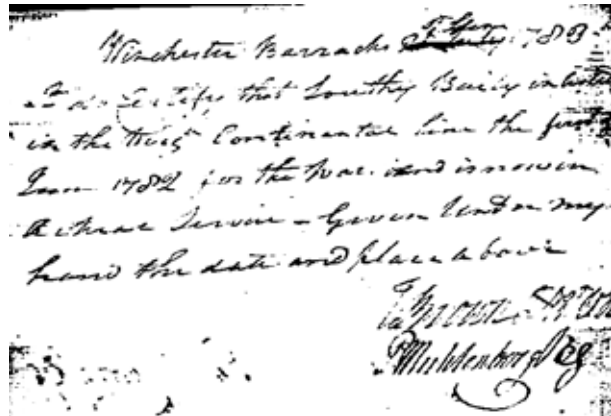 Winchester Barracks 783
I do Certify that Southy Baily inlisted
in the Virga Continental line the first
Jan 1782 for the War. and is now in
Actual Service - Given Under my
hand the date and place above
Muhlenberg